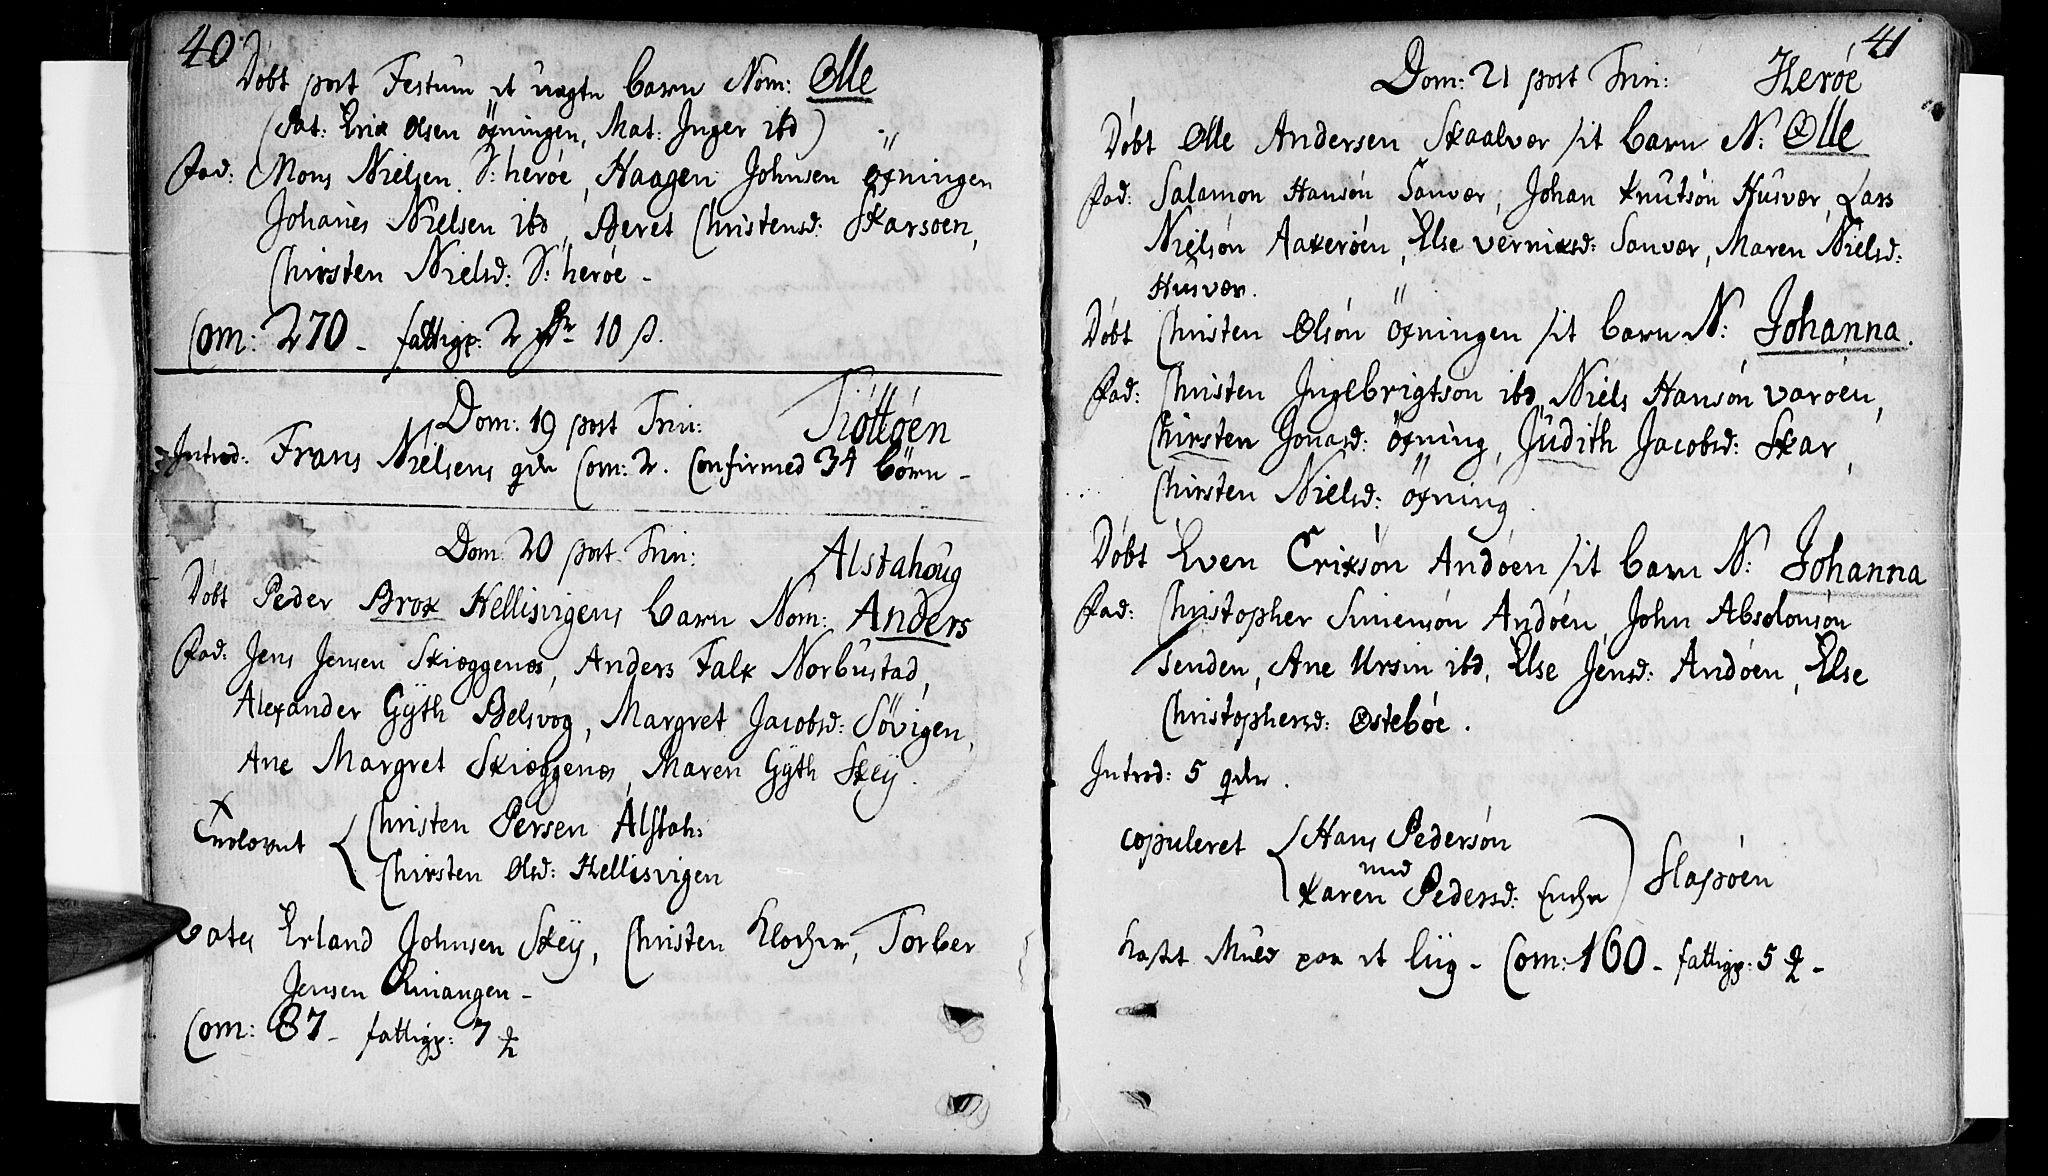 40
Döbt post Festum et uægte barn Nom: Olle
(Pat: Erix Olsen öxningen, Mat: Inger ibd)
Fad: Mons Nielsen S: heröe, Haagen Johnsen öxningen
Johanes Nielsen ibd, Beret Christensd: Skarsoen,
Chirsten Nielsd: S: heröe -
Com: 270 - fattigp: 2 10 ß.
Dom: 19 post Trin: Tiöttöen
Introd: Frans Nielsens qde Com: 2. Confirmed 34 börn -
Dom: 20 post Trin: Alstahoug
Döbt Peder Brox Hellisvigens barn Nom: Anders
Fad: Jens Jensen Skiæggenæs, Anders Falk Norbustad,
Alexander Gÿth Belsvog, Margret Jacobsd: Sövigen,
Ane Margret Skiæggenæs, Maren Gÿth Skeÿ.
Trolovet Christen Persen Alstah:
Chirsten Olsd: Hellisvigen
Cates Erland Johnsen Skeÿ, Christen Klocher, Torber
Jensen
Com: 87 - fattigp: 7
41
Dom: 21 post Trin: Heröe
Döbt Olle Andersen Skaalvær sit barn N: Olle
Fad: Salamon Hansön Sanvær, Johan Knutsön Husvær, Lars
Nielsön Aakeröen, Else vernixsd: Sanvær, Maren Nielsd:
Husvær.
Döbt Christen Olsön öxningen sit barn N: Johanna.
Fad: Christen Ingebrigtsön ibd, Niels Hansön varöen,
Chirsten Jonasd: öxning, Judith Jacobsd: Skar,
Chirsten Nielsd: öxning.
Döbt Even Erixsön Andöen sit barn N: Johanna
Fad: Christopher Simensön Andöen, John Absolonsön
senden, Ane Ursin ibd, Else Jensd: Andöen, Else
Christophersd: Osteböe.
Introd: 5 qder.
copuleret Hans Pedersön
med
Karen Pedersd: Enche Slapöen
Kastet Muld paa et liig - Com: 160 - fattigp: 5